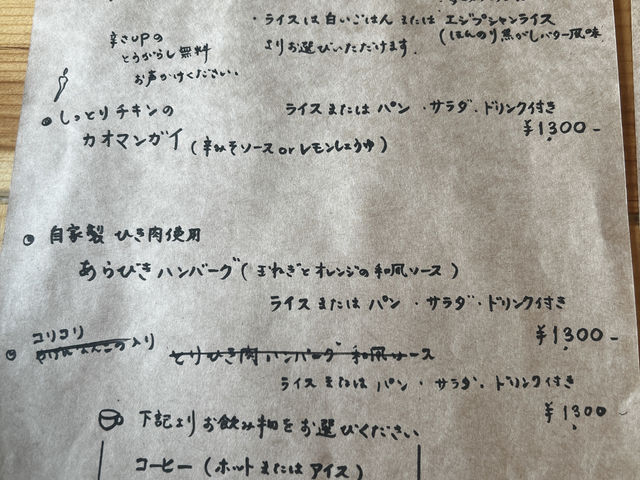 ・ライスは白いごはん または エジプシャンライス
(ほんのり焦がしバター風味
よりお選びいただけます。
辛さUPの
とうがらし無料
お声かけください。
しっとりチキンの
カオマンガイ (辛みそソース or レモンしょうゆ)
ライス または パン ・サラダ・ドリンク付き
¥1,300-
自家製 ひき肉使用
あらびきハンバーグ (玉ねぎとオレンジの和風ソース)
ライス または パン ・ サラダ・ドリンク付き
¥1,300-
コリコリ
入り とりひき肉ハンバーグ 和風ソース
ライス または パン ・ サラダ・ドリンク付き
¥1,300
下記より お飲み物をお選びください
コーヒー (ホット または アイス)